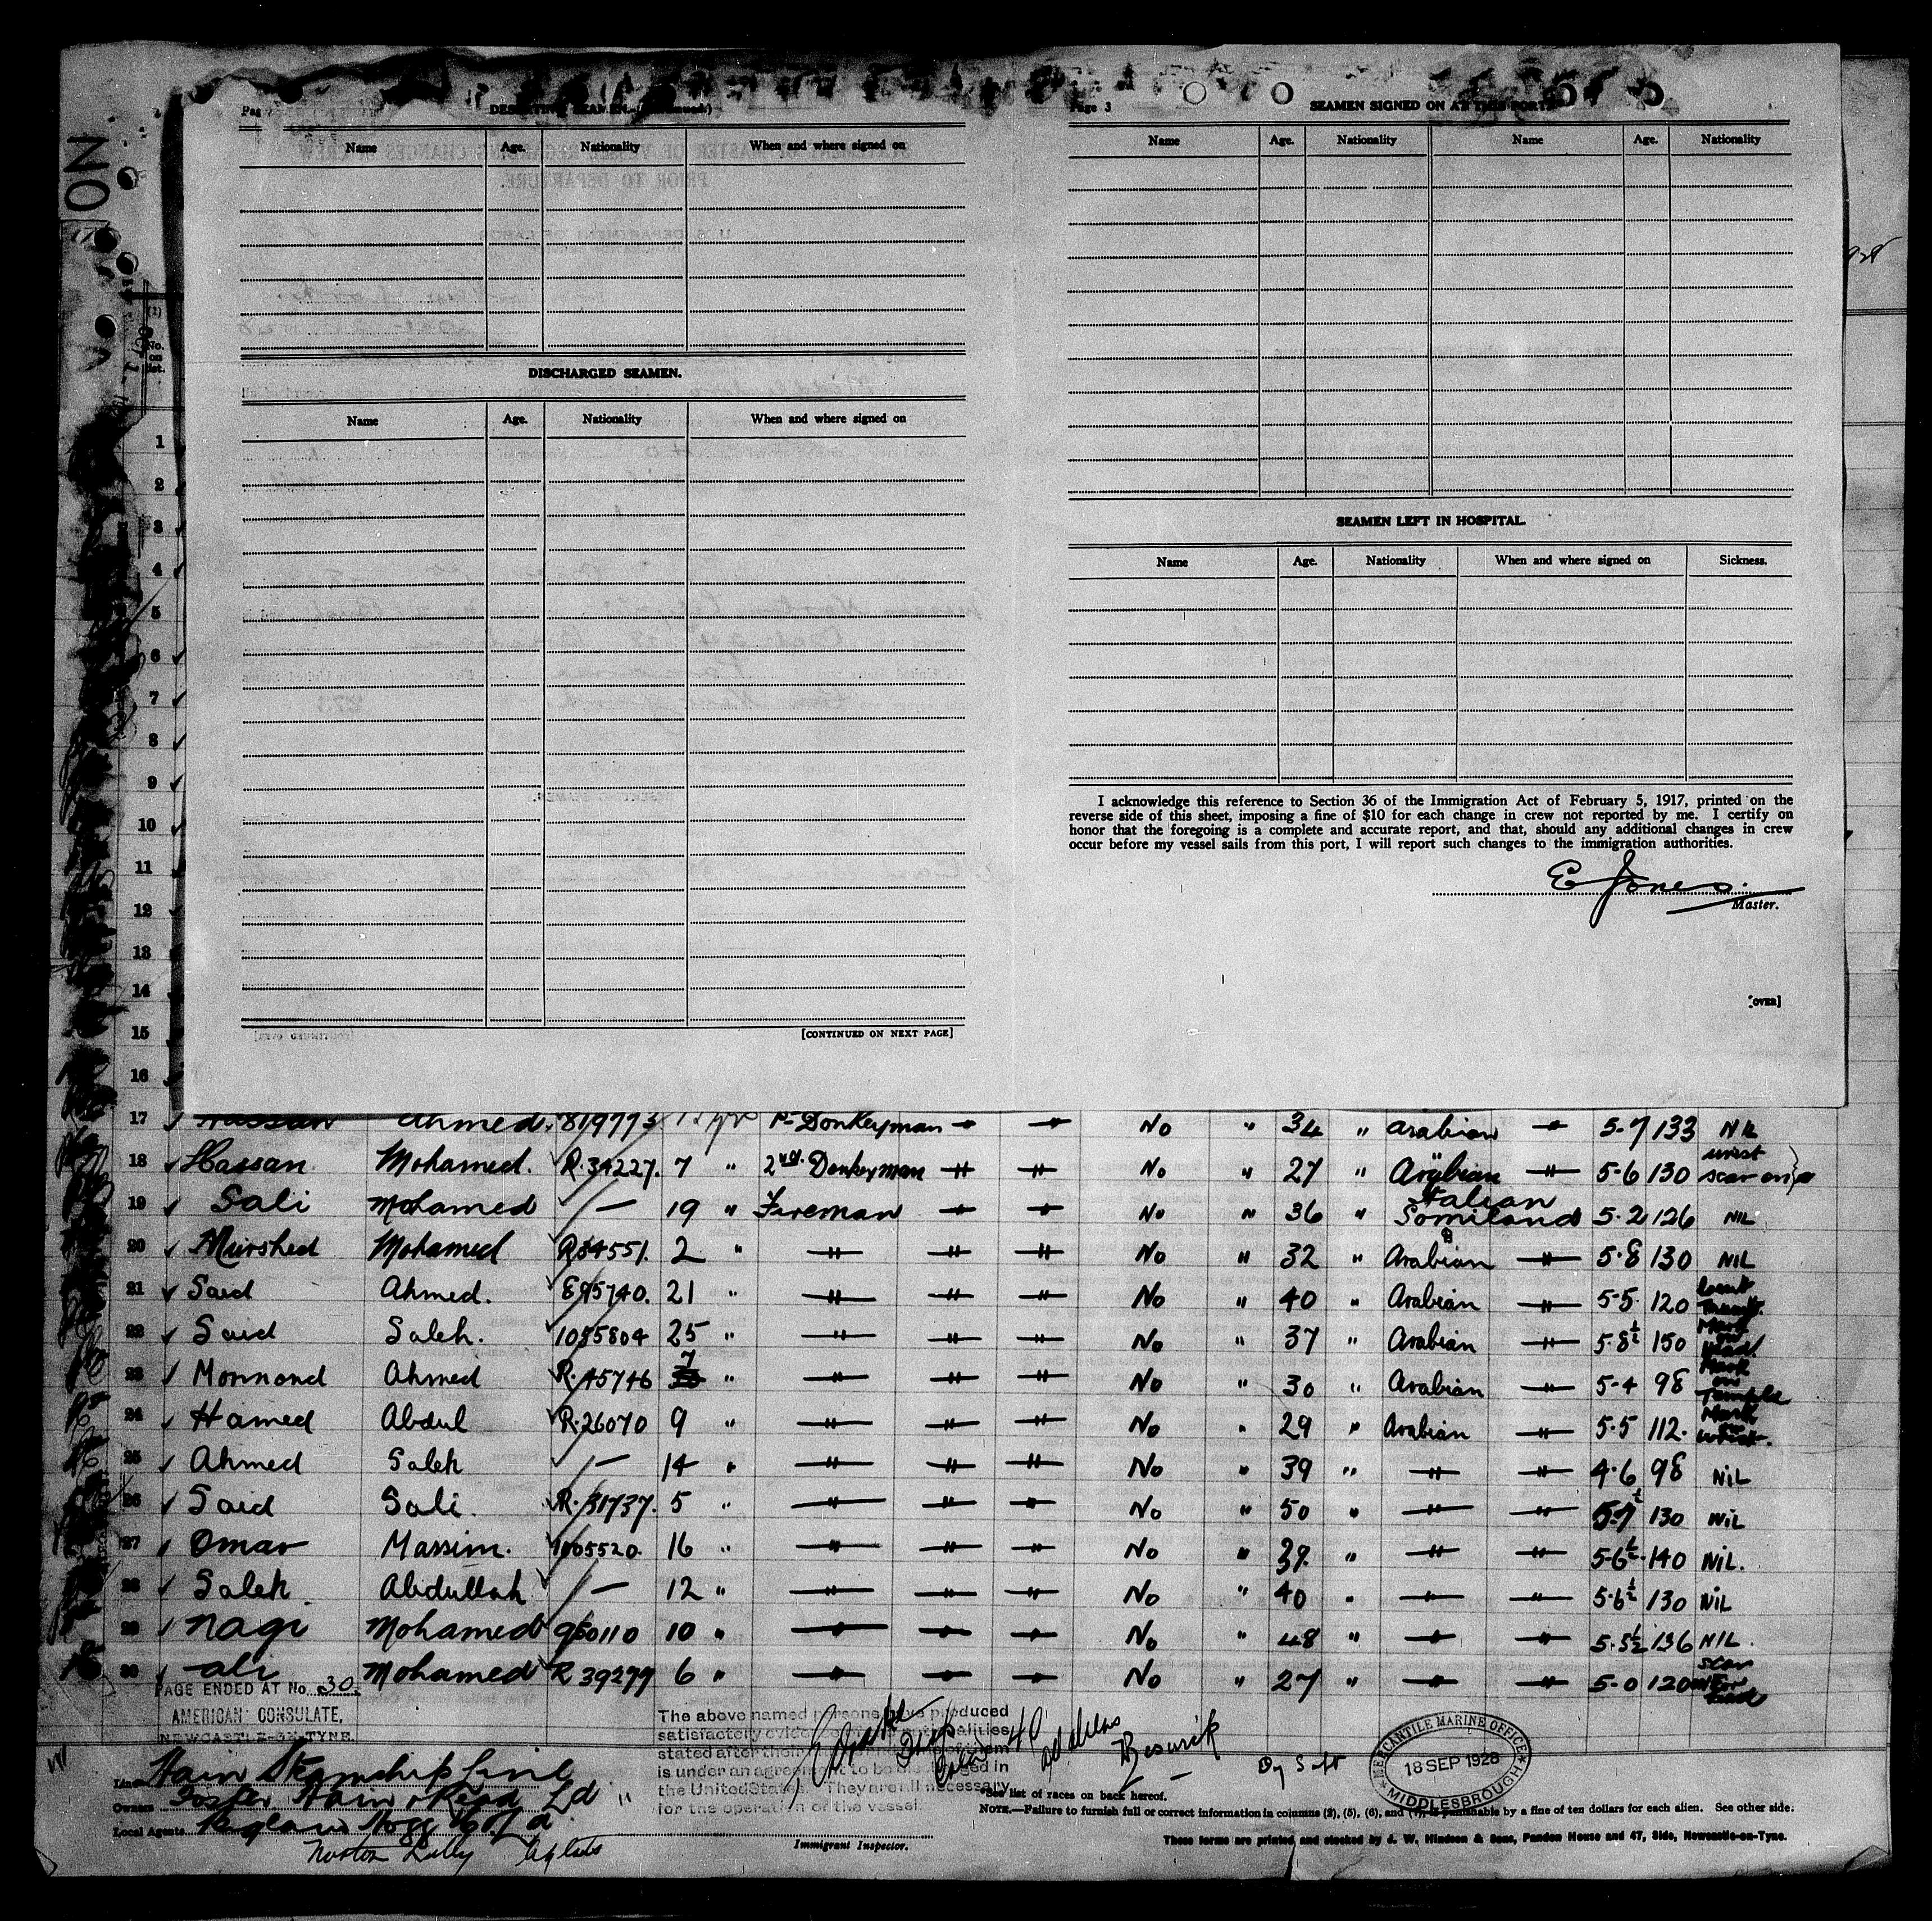 NO
DESERTING SEAMEN—(Continued)
Name Age. Nationality When and where signed on
DISCHARGED SEAMEN.
Name Age. Nationality When and where signed on
[CONTINUED ON NEXT PAGE]
Page 3 SEAMEN SIGNED ON AT THIS PORT
Name Age. Nationality Name Age. Nationality
SEAMEN LEFT IN HOSPITAL.
Name Age. Nationality When and where signed on Sickness.
I acknowledge this reference to Section 36 of the Immigration Act of February 5, 1917, printed on the
reverse side of this sheet, imposing a fine of $10 for each change in crew not reported by me. I certify on
honor that the foregoing is a complete and accurate report, and that, should any additional changes in crew
occur before my vessel sails from this port, I will report such changes to the immigration authorities.
E Jones.
Master.
[OVER]
(2)
No.
on
list.
1
2
3
4
5
6
7
8
9
10
11
12
13
14
15
16
17 Hassan Ahmed. 819773 1st Donkeyman " " No " 34 " Arabian " 5-7 133 NIL
18 Hassan Mohamed. R.34227. 7 " 2nd. Donkeyman " " No " 27 " Arabian " 5-6 130 scar on wrist
19 Sali Mohamed — 19 " Fireman " " No " 36 " Italian Somiland 5.2 126 NIL
20 Murshed Mohamed R84551. 2 " " " " No " 32 " Arabian " 5.8 130 NIL
21 Said Ahmed. E95740. 21 " " " " No " 40 " Arabian " 5-5. 120
22 Said Saleh. 1055804 25 " " " " No " 37 " Arabian " 5-8½ 150 Mark on Head
23 Monnond Ahmed R.45746 7 " " " " No " 30 " Arabian " 5-4 98 Mark on Temple
24 Hamed Abdul R.26070 9 " " " " No " 29 " Arabian " 5.5 112. Mark on wrist.
25 Ahmed Saleh — 14 " " " " No " 39 " " " 4.6 98 NIL
26 Said Sali. R.31737. 5 " " " " No " 50 " " " 5-7½ 130 NIL
27 Omar Massim. 1005520. 16 " " " " No " 39. " " " 5-6½ 140 NIL.
28 Saleh Abdullah — 12 " " " " No " 40 " " " 5-6½ 130 NIL
29 Nagi Mohamed 960110 10 " " " " No " 48 " " " 5.5½ 136 NIL.
30 Ali Mohamed R 39279 6 " " " " No " 27 " " " 5-0 120 scar
PAGE ENDED AT No. 30.
AMERICAN CONSULATE,
NEWCASTLE-ON-TYNE.
The above named persons have produced
satisfactory evidence of their nationalities
stated after their
is under an agreement to be discharged in
the United States. They are all necessary
for the operation of the vessel.
Line Hain Steamship Line
Owners Foster Hain & Read Ld
Local Agents
Norton Lilly Agents
Immigrant Inspector.
MERCANTILE MARINE OFFICE
18 SEP 1928
MIDDLESBROUGH
*See list of races on back hereof.
NOTE.—Failure to furnish full or correct information in columns (2), (5), (6), and (7), is punishable by a fine of ten dollars for each alien. See other side.
These forms are printed and stocked by J. W. Hindson & Sons, Pandon House and 47, Side, Newcastle-on-Tyne.